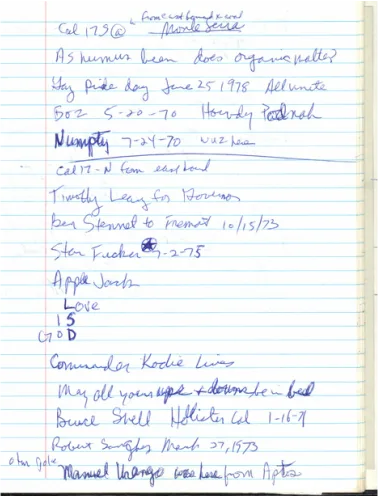 from east bound x road
Cal 17 S @
As humus been does organic matter?
Gay Pride day June 25 1978 All unite
Boz 5-20-70 Howdy Podnah
Numpty 7-24-70 wuz here
Cal 17-N from east bound
Timothy Leary for Governor
Ben Stennet to Fremont 10/15/73
Star Fucker 7-2-75
Apple Jack
Love
IS
GOD
Commander Kodie Lives
May all your ups & downs be in bed
Bruce Shell Hollister Cal 1-16-71
Robert March 27, 1973
Manuel was here from Aptos